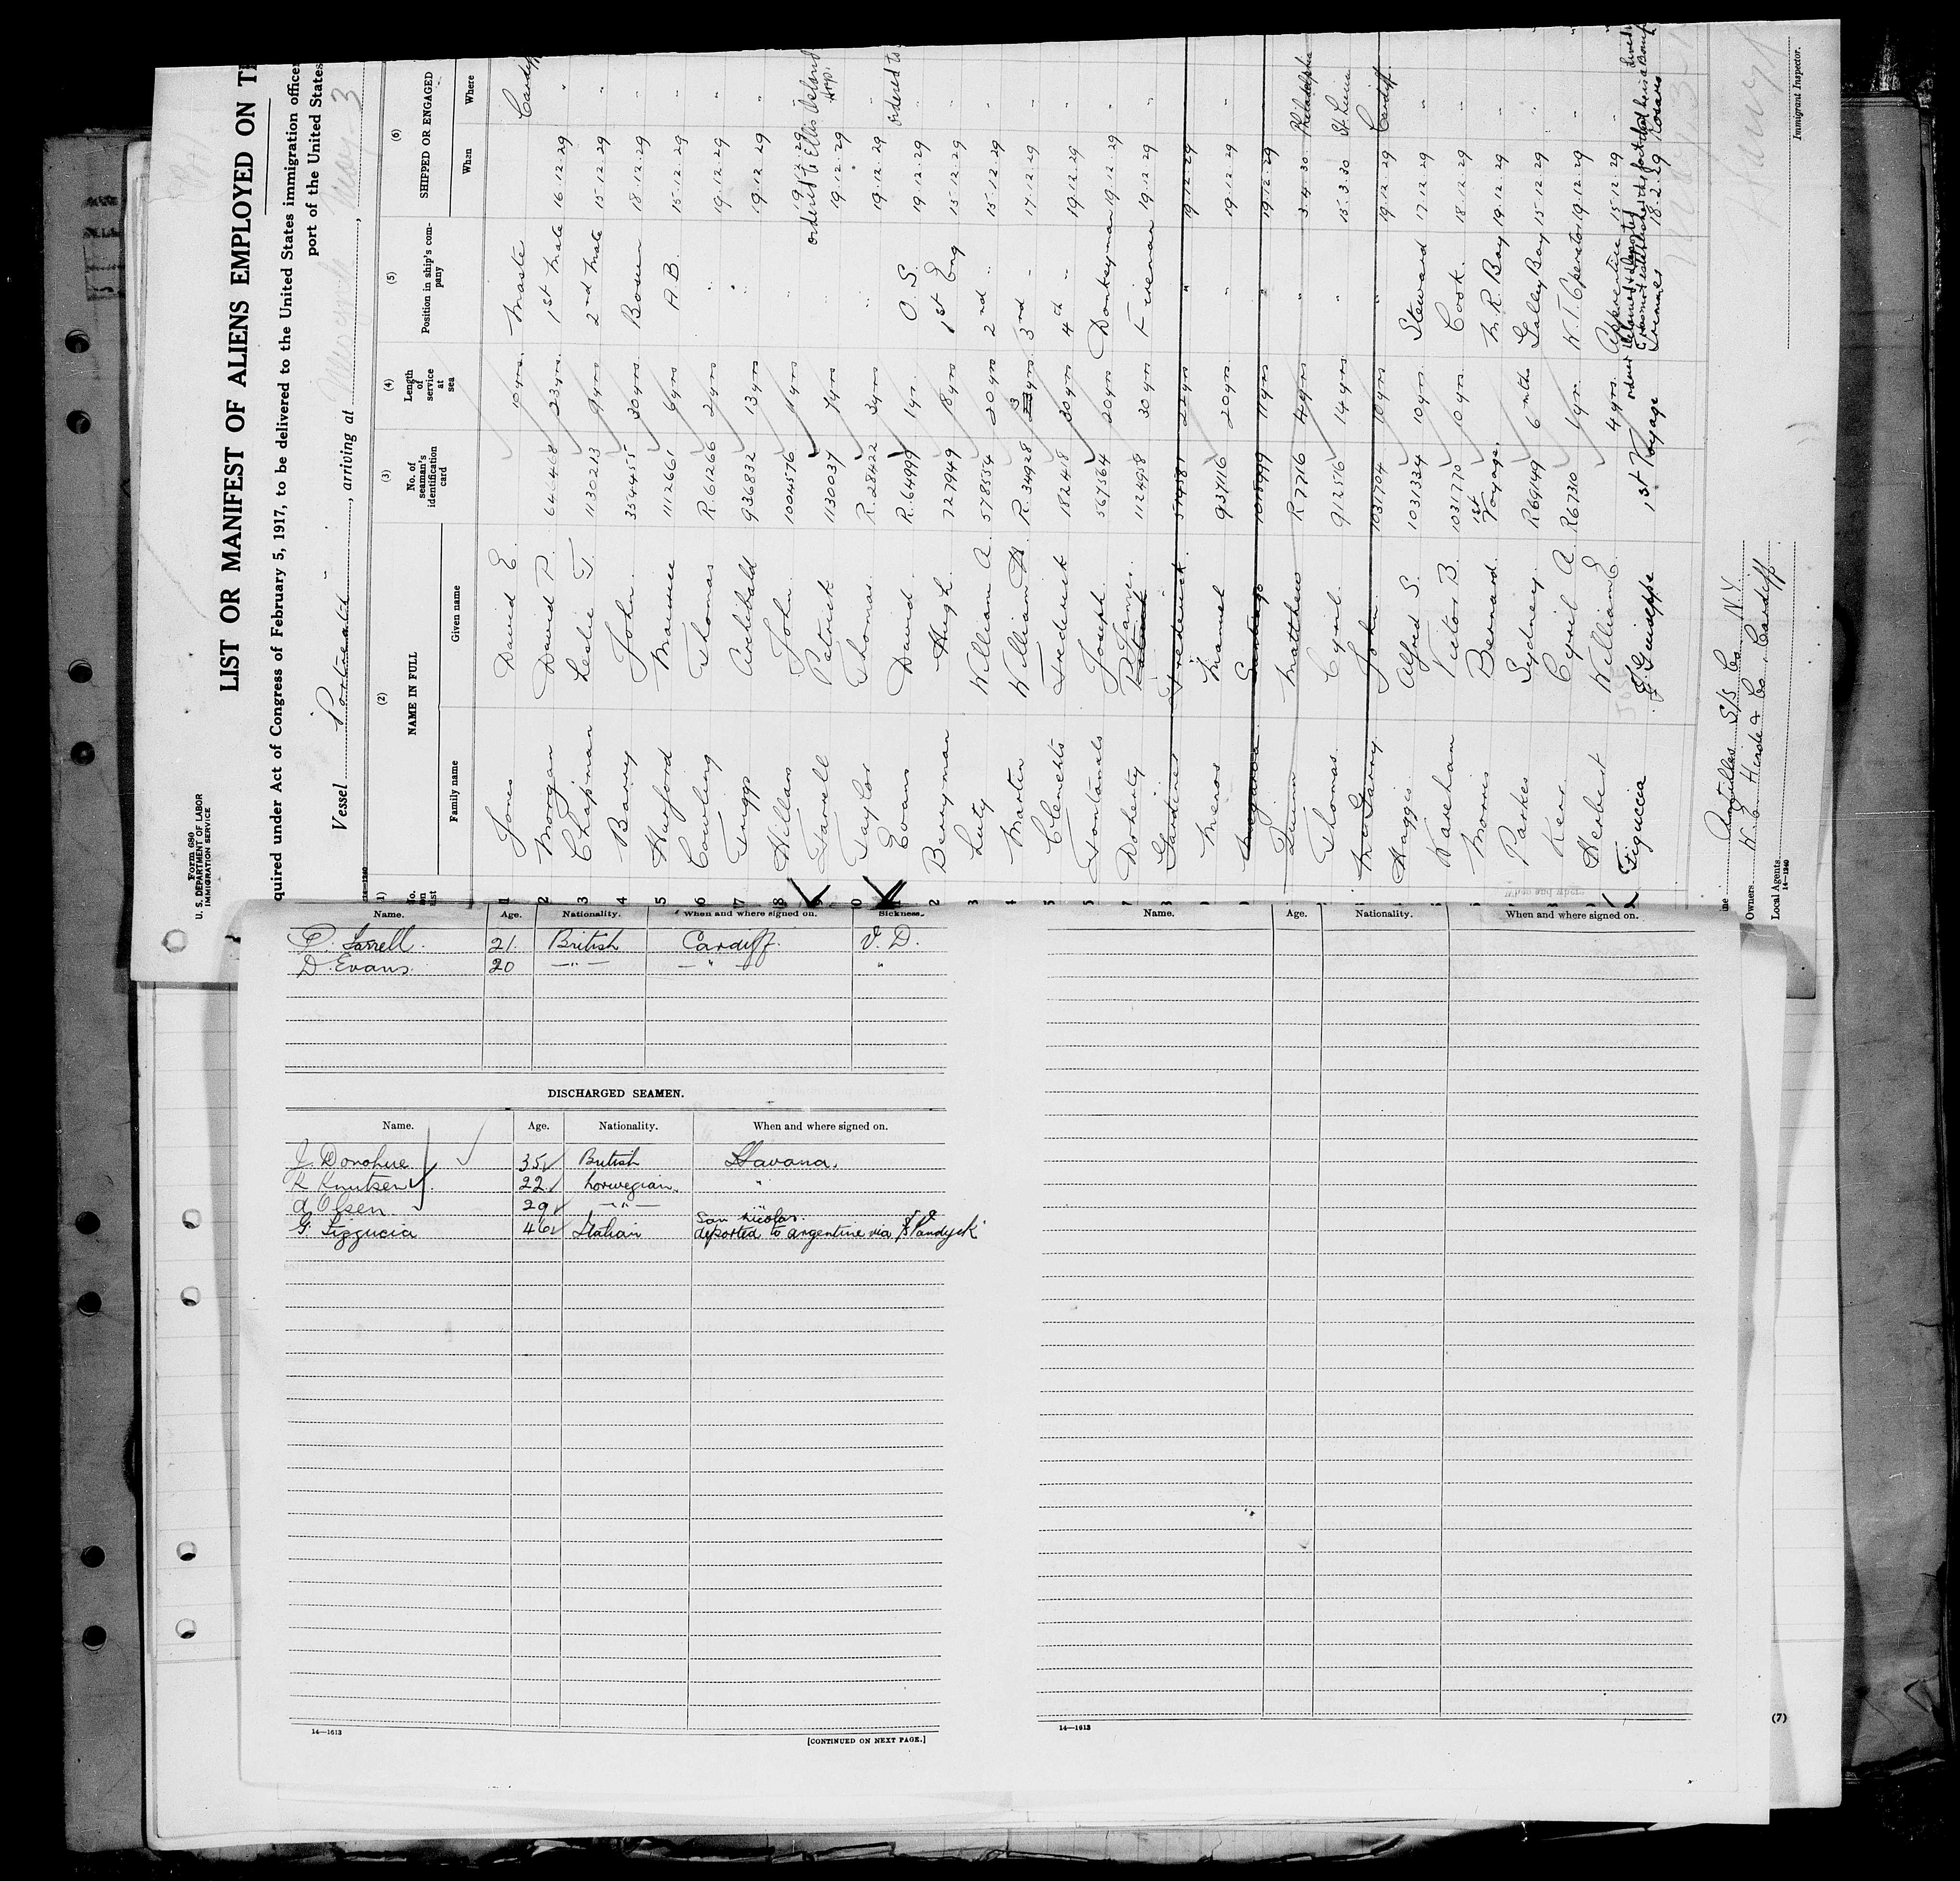 Form 680
U. S. DEPARTMENT OF LABOR
IMMIGRATION SERVICE
LIST OR MANIFEST OF ALIENS EMPLOYED ON
quired under Act of Congress of February 5, 1917, to be delivered to the United States immigration officer
port of the United States
Vessel , arriving at ,
(1) (2) (3) (4) (5) (6)
NAME IN FULL No. of seaman's identification card Length of service at sea Position in ship's company SHIPPED OR ENGAGED
Family name Given name When Where
1 Jones David E. 10 yrs Maste Cardiff
2 Morgan David P. 646468 23 yrs 1st Mate 16.12.29 "
3 Chapman Leslie T. 1130213 9 yrs 2nd Mate 15.12.29 "
4 Barry John 354455 30 yrs Bosun 18.12.29 "
5 Harford Maurice 1112661 6 yrs A B. 15.12.29 "
6 Cowling Thomas R.61266 2 yrs " 19.12.29 "
7 Archibald 936832 13 yrs " 19.12.29 "
8 Hillan John 1004576 yrs " 19.12.29 "
9 Farrell Patrick 1130037 7 yrs 19.12.29 ordered to Ellis Island Hosp.
0 Taylor Thomas R.28422 3 yrs " 19.12.29 "
11 Evans David R.64999 1 yr. O. S. 19.12.29 " ordered to
2 Berryman Hugh L. 727949 8 yrs 1st Eng 15.12.29 "
3 Luty William A. 578554 20 yrs 2nd " 15.12.29 "
4 Marten William H. R.34928 3 yrs 3rd " 17.12.29 "
5 Clements Frederick 182418 30 yrs 4th " 19.12.29 "
Joseph 567564 20 yrs Donkeyman 19.12.29 "
7 Doherty P. James. 1124958 30 yrs Fireman 19.12.29 "
8 Gardiner Frederick. 22 yrs " 19.12.29
Manuel 937116 20 yrs. " 19.12.29 "
Santiago 11 yrs " 19.12.29
Matthew R 77716 4 yrs " 3.4.30 Philadelphia
Thomas Cyril. 912516 14 yrs " 15.3.30 St. Lucia
McGarry John. 1031704 10 yrs " 19.12.29 Cardiff.
Haggis Alfred S. 1031334 10 yrs. Steward 17.12.29 "
Wareham Victor B. 1031770 10 yrs. Cook. 18.12.29 "
Morris Bernard. 1st Voyage. M.R. Boy 19.12.29
Parkes Sydney. R69149 6 mths Galley Boy 15.12.29 "
Kerr Cyril A. R67310 1 yr. W.T. Operator 19.12.29 "
Herbert William E. 4 yrs. Apprentice 15.12.29 "
Figuccia Guiseppe 1st Voyage 18.2.29 Rosario
Antillas S/S Co N.Y.
Owners W. E. Hinde & Co. Cardiff
Local Agents
14—1240
Immigrant Inspector.
Name. Age. Nationality. When and where signed on. Sickness.
P. Farrell. 21. British Cardiff. V. D.
D. Evans. 20 —"— —"— "
DISCHARGED SEAMEN.
Name. Age. Nationality. When and where signed on.
J. Donohue 35 British Havana.
R Knutsen 22 Norwegian. "
A Olsen. 29 —"— "
San Nicolas.
G. Figgucia 46 Italian deported to Argentine via Vandyck
14—1613
[CONTINUED ON NEXT PAGE.]
Name. Age. Nationality. When and where signed on.
14—1613
(7)